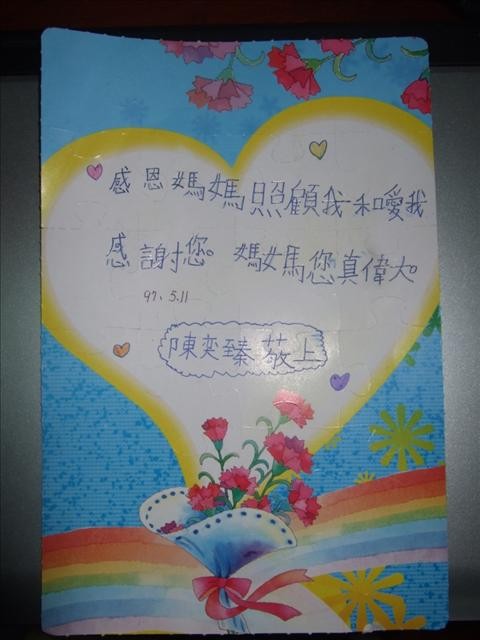 感恩媽媽照顧我和噯我
感謝您。媽媽您真偉大。
97、5.11
陳奕臻敬上